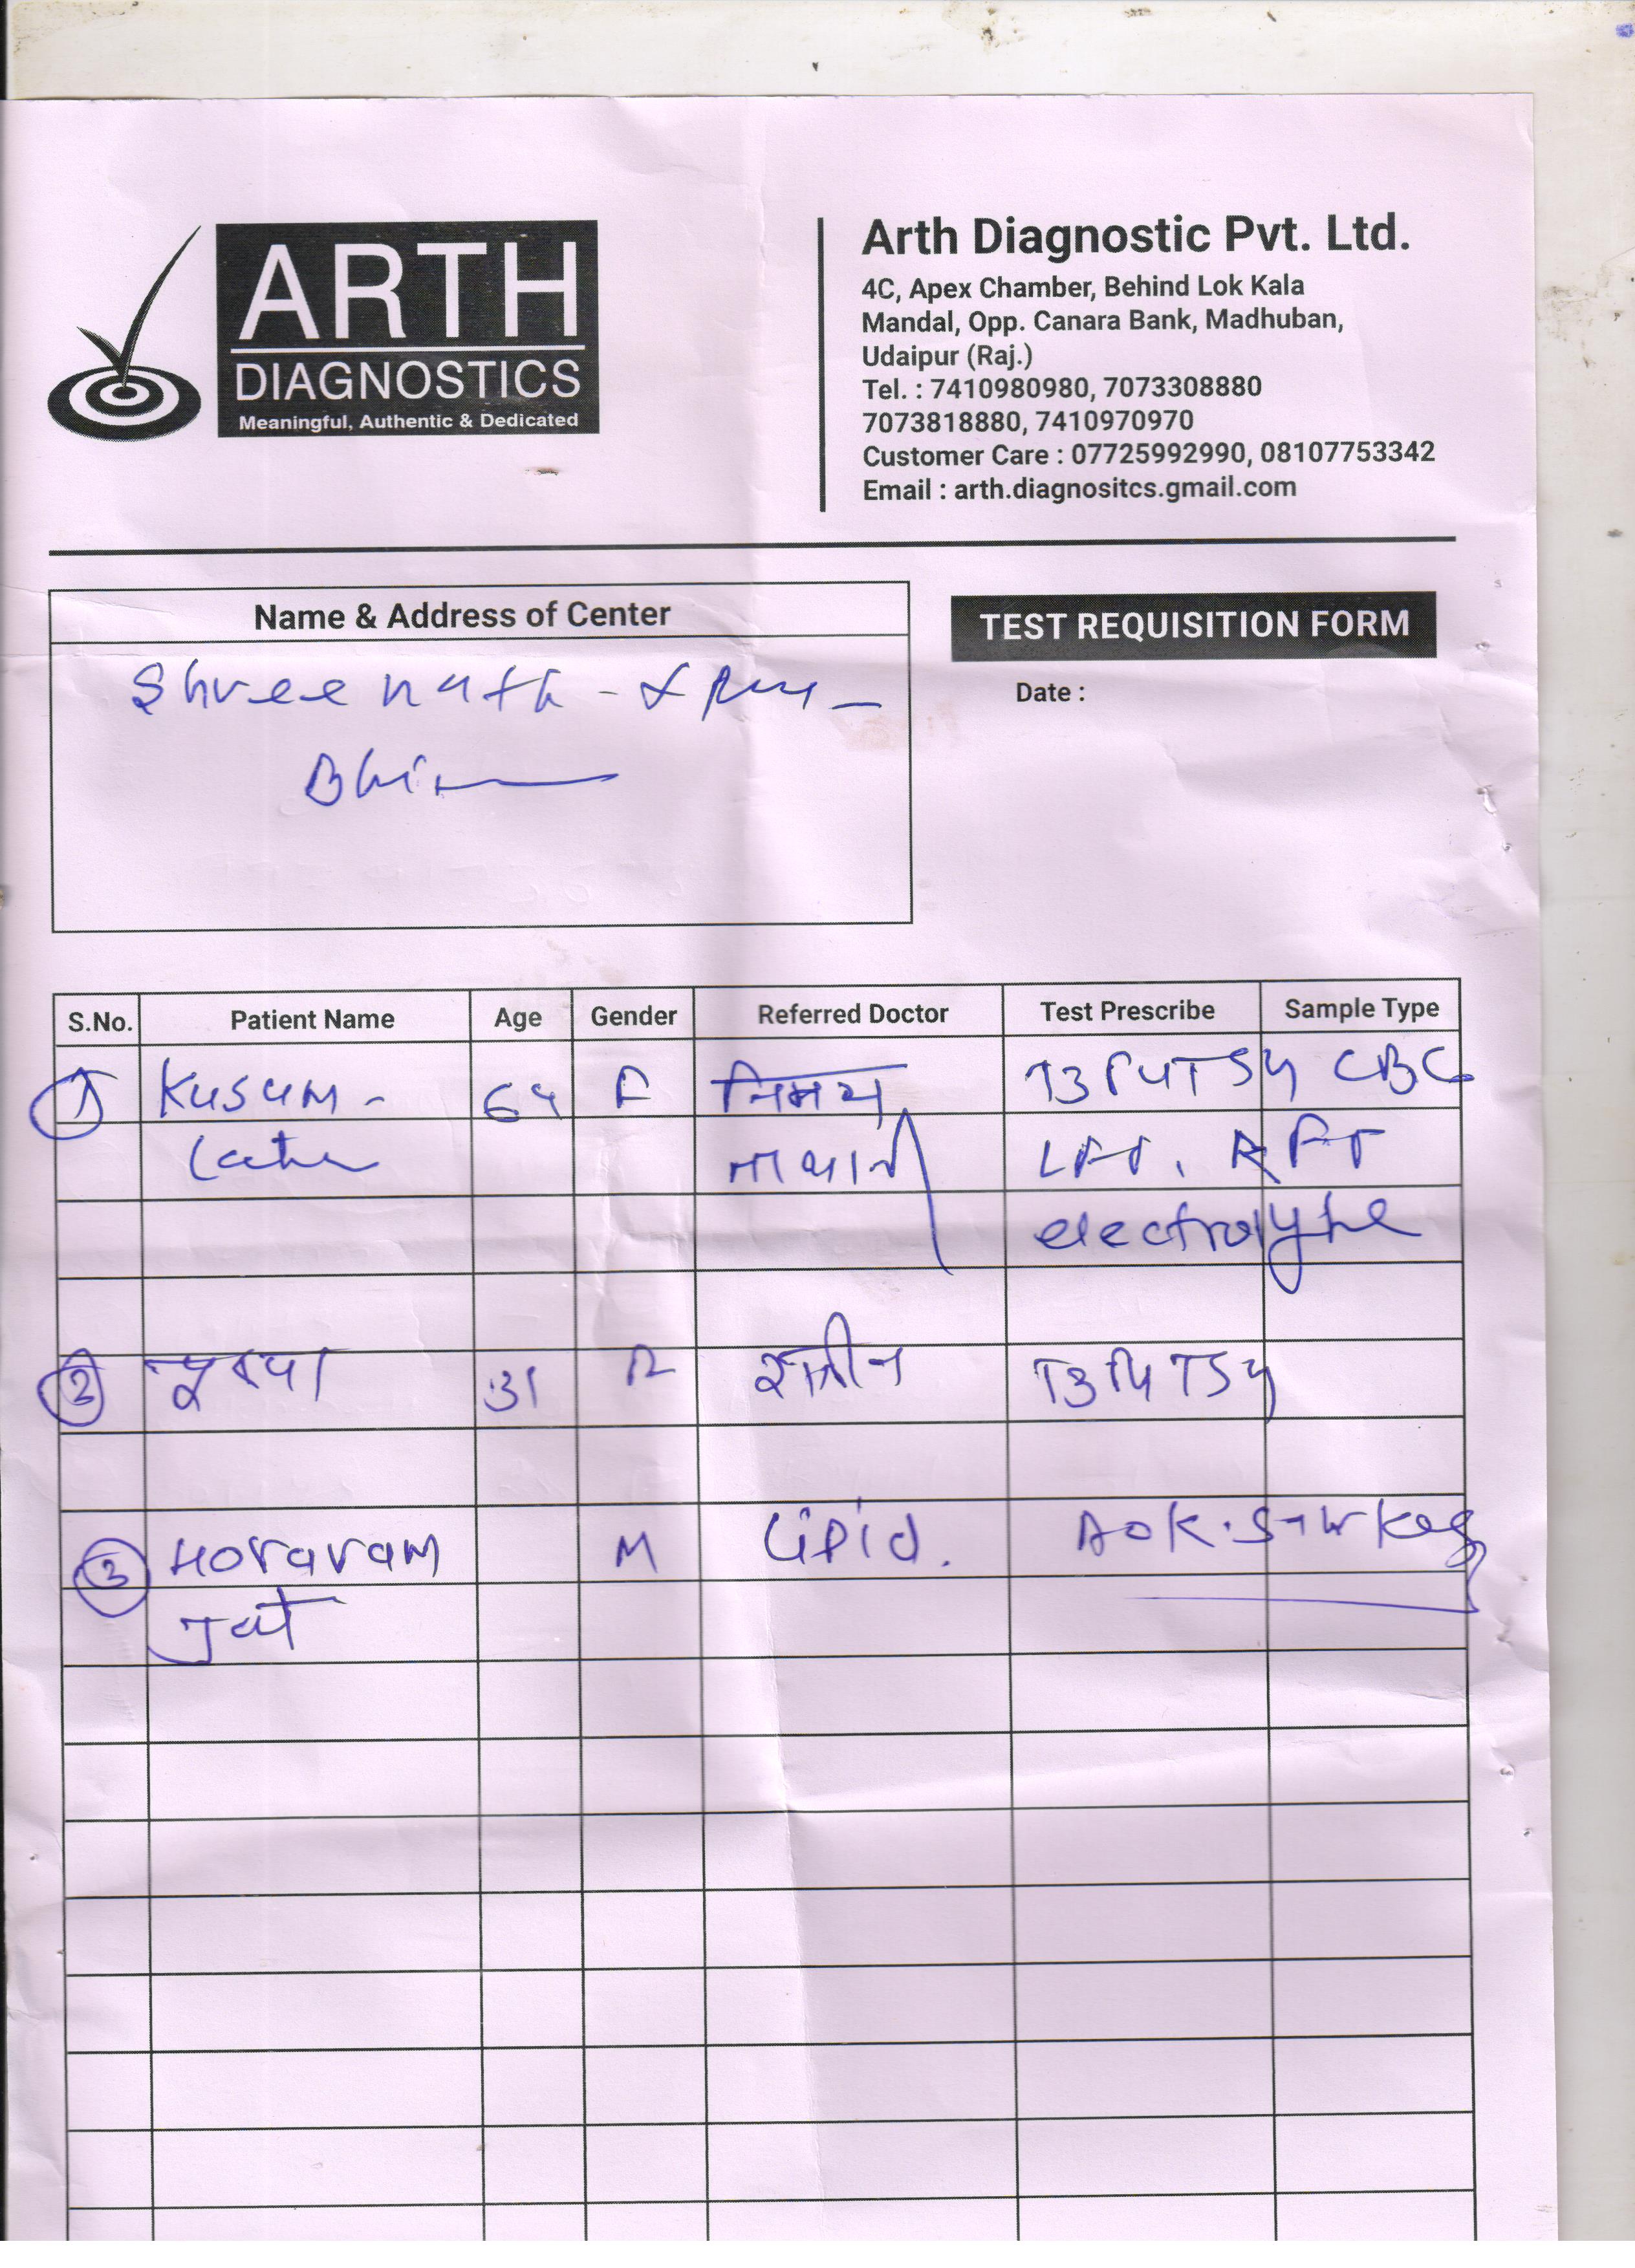 ARTH
DIAGNOSTICS
Meaningful, Authentic & Dedicated
Arth Diagnostic Pvt. Ltd.
4C, Apex Chamber, Behind Lok Kala
Mandal, Opp. Canara Bank, Madhuban,
Udaipur (Raj.)
Tel. : 7410980980, 7073308880
7073818880, 7410970970
Customer Care : 07725992990, 08107753342
Email : arth.diagnositcs.gmail.com
Name & Address of Center
TEST REQUISITION FORM
Shreenath -
Date :
Bhim
S.No. Patient Name Age Gender Referred Doctor Test Prescribe Sample Type
1 Kusum- 64 F T3T4TSH CBC
Lata LFT, RFT
electrolyte
2 31 F T3T4TSH
3 Horaram M Lipid.
Jat